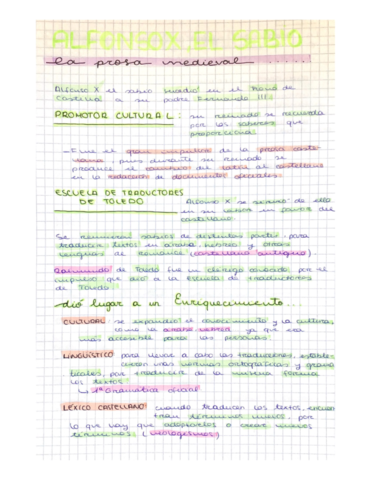 ALFONSO X EL SABIO
la prosa medieval
Alfonso X el sabio sucedió en el trono de
Castilla a su padre Fernando III.
PROMOTOR CULTURAL: su reinado se recuerda
por los saberes que
proporciona.
- Fue el gran impulsor de la prosa caste
llana, pues durante su reinado se
produce el del latín al castellano
en la redacción de documentos oficiales.
ESCUELA DE TRADUCTORES
DE TOLEDO
Alfonso X se sirvió de ella
en su
castellano.
Se reunieron sabios de distintas partes para
traducir textos en árabe, hebreo y otras
lenguas de romance (castellano antiguo).
Raimundo de Toledo fue un clérigo conocido por el
impulso que dio a la Escuela de traductores
de Toledo.
dió lugar a un Enriquecimiento...
CULTURAL: se expandió el conocimiento y la cultura,
como la ya que era
más accesible para las personas.
LINGÜÍSTICO para llevar a cabo las traducciones, estable-
cieron unas normas ortográficas y grama
ticales, para traducir de la misma forma
los textos.
↳ 1ª Gramática
LÉXICO CASTELLANO cuando traducen los textos,
términos nuevos, por
lo que hay que adaptarlos o crear nuevos
términos. (neologismos)